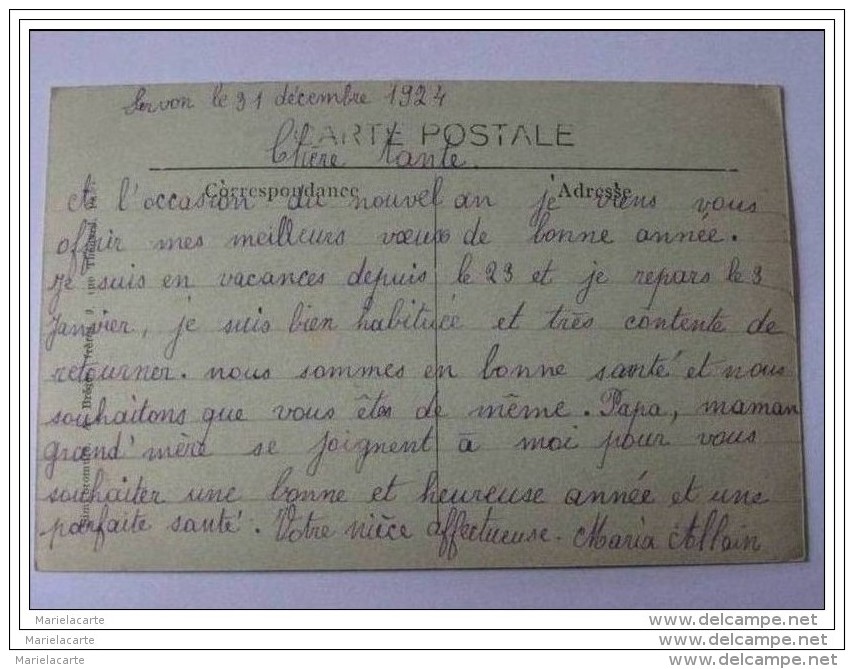 Servon le 31 décembre 1924
CARTE POSTALE
Chère tante.
Correspondance
Adresse
A l'occasion du nouvel an je viens vous
offrir mes meilleurs vœux de bonne année.
Je suis en vacances depuis le 23 et je repars le 3
Janvier, je suis bien habituée et très contente de
retourner. nous sommes en bonne santé et nous
souhaitons que vous êtes de même. Papa, maman
grand'mère se joignent à moi pour vous
souhaiter une bonne et heureuse année et une
parfaite santé. Votre nièce affectueuse. Maria Allain
Marielacarte
www.delcampe.net
Marielacarte
www.delcampe.net
Marielacarte
www.delcampe.net